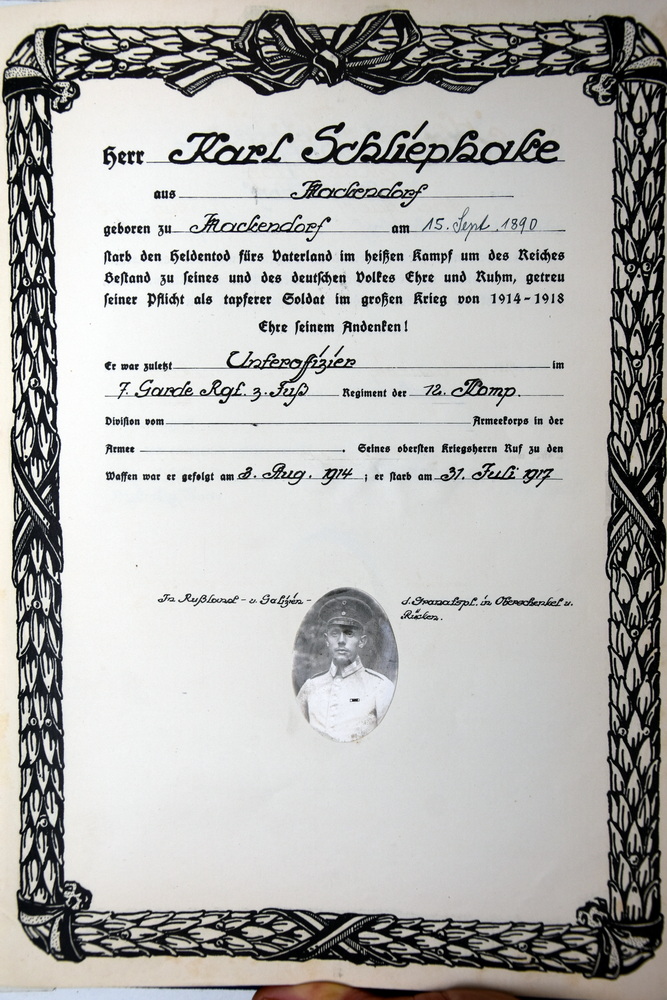 Herr Karl Schliephake
aus Mackendorf
geboren zu Mackendorf am 15. Sept. 1890
starb den Heldentod fürs Vaterland im heißen Kampf um des Reiches
Bestand zu seines und des deutschen Volkes Ehre und Ruhm, getreu
seiner Pflicht als tapferer Soldat im großen Krieg von 1914-1918
Ehre seinem Andenken!
Er war zuletzt Unteroffizier im
7. Garde Rgt. z. Fuß Regiment der 12. Komp.
Division vom Armeekorps in der
Armee . Seines obersten Kriegsherrn Ruf zu den
Waffen war er gefolgt am 3. Aug. 1914 ; er starb am 31. Juli 1917
In Rußland - u. Galizien - d. Granatspl. in Oberschenkel u.
Rücken.